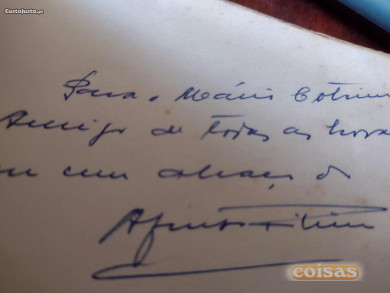 CustoJusto.pt
Para o Mário Cotrim
Amigo de todas as horas
um abraço d
coisas